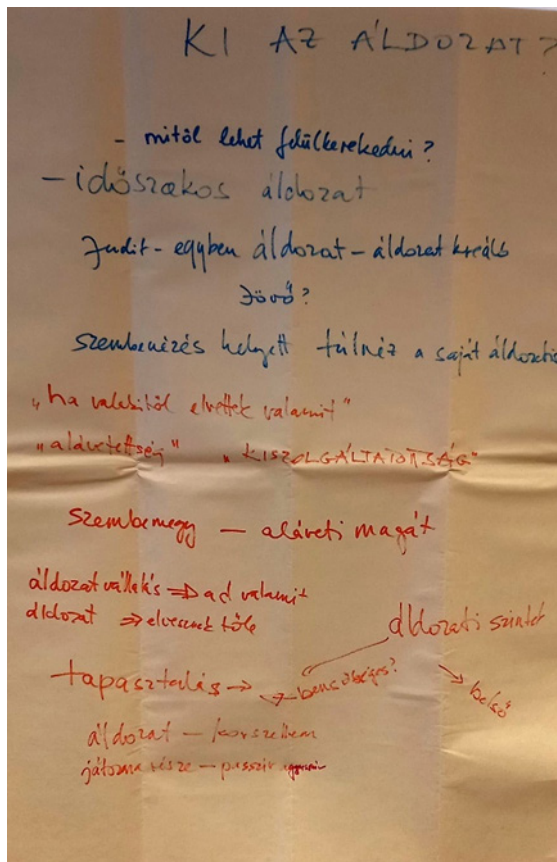 KI AZ ÁLDOZAT?
- mitől lehet felülkerekedni?
- időszakos áldozat
Judit - egyben áldozat - áldozat kreáló
Jövő?
szembenézés helyett túlnéz a saját
"ha valakitől elvettek valamit"
"alávetettség" "KISZOLGÁLTATOTTSÁG"
szembemegy - aláveti magát
áldozatvállalás ⇒ ad valamit
áldozat ⇒ elvesznek tőle
áldozati szintek
tapasztalás → → bensőséges?
→ belső
áldozat - korszellem
játszma része - passzív